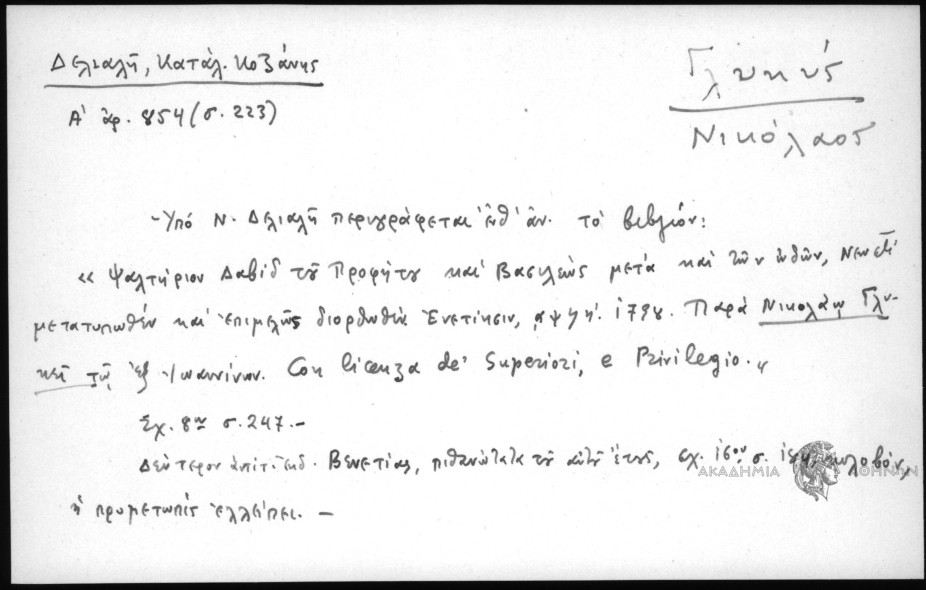 Δελιαλῆ, Κατάλ. Κοζάνης
Α' ἀρ. 854 (σ. 223)
Γλυκύς
Νικόλαος
- Ὑπό Ν. Δελιαλῆ περιγράφεται ἐνθ' ἀν. τό βιβλίον:
« Ψαλτήριον Δαβίδ τοῦ Προφήτου καί Βασιλέως μετά καί τῶν ὠδῶν, Νεωστί
μετατυπωθέν καί ἐπιμελῶς διορθωθέν Ἐνετίησιν, αψϟη'. 1798. Παρά Νικολάῳ Γλυ-
κεῖ τῷ ἐξ Ἰωαννίνων. Con licenza de' Superiori, e Privilegio. »
Σχ. 8ον σ. 247. -
Δεύτερον ἀντίτ. ἐκδ. Βενετίας, πιθανώτατα τοῦ αὐτοῦ ἔτους, σχ. 16ον σ. κολοβόν,
ἡ προμετωπίς ἐλλείπει. -
ΑΚΑΔΗΜΙΑ ΑΘΗΝΩΝ